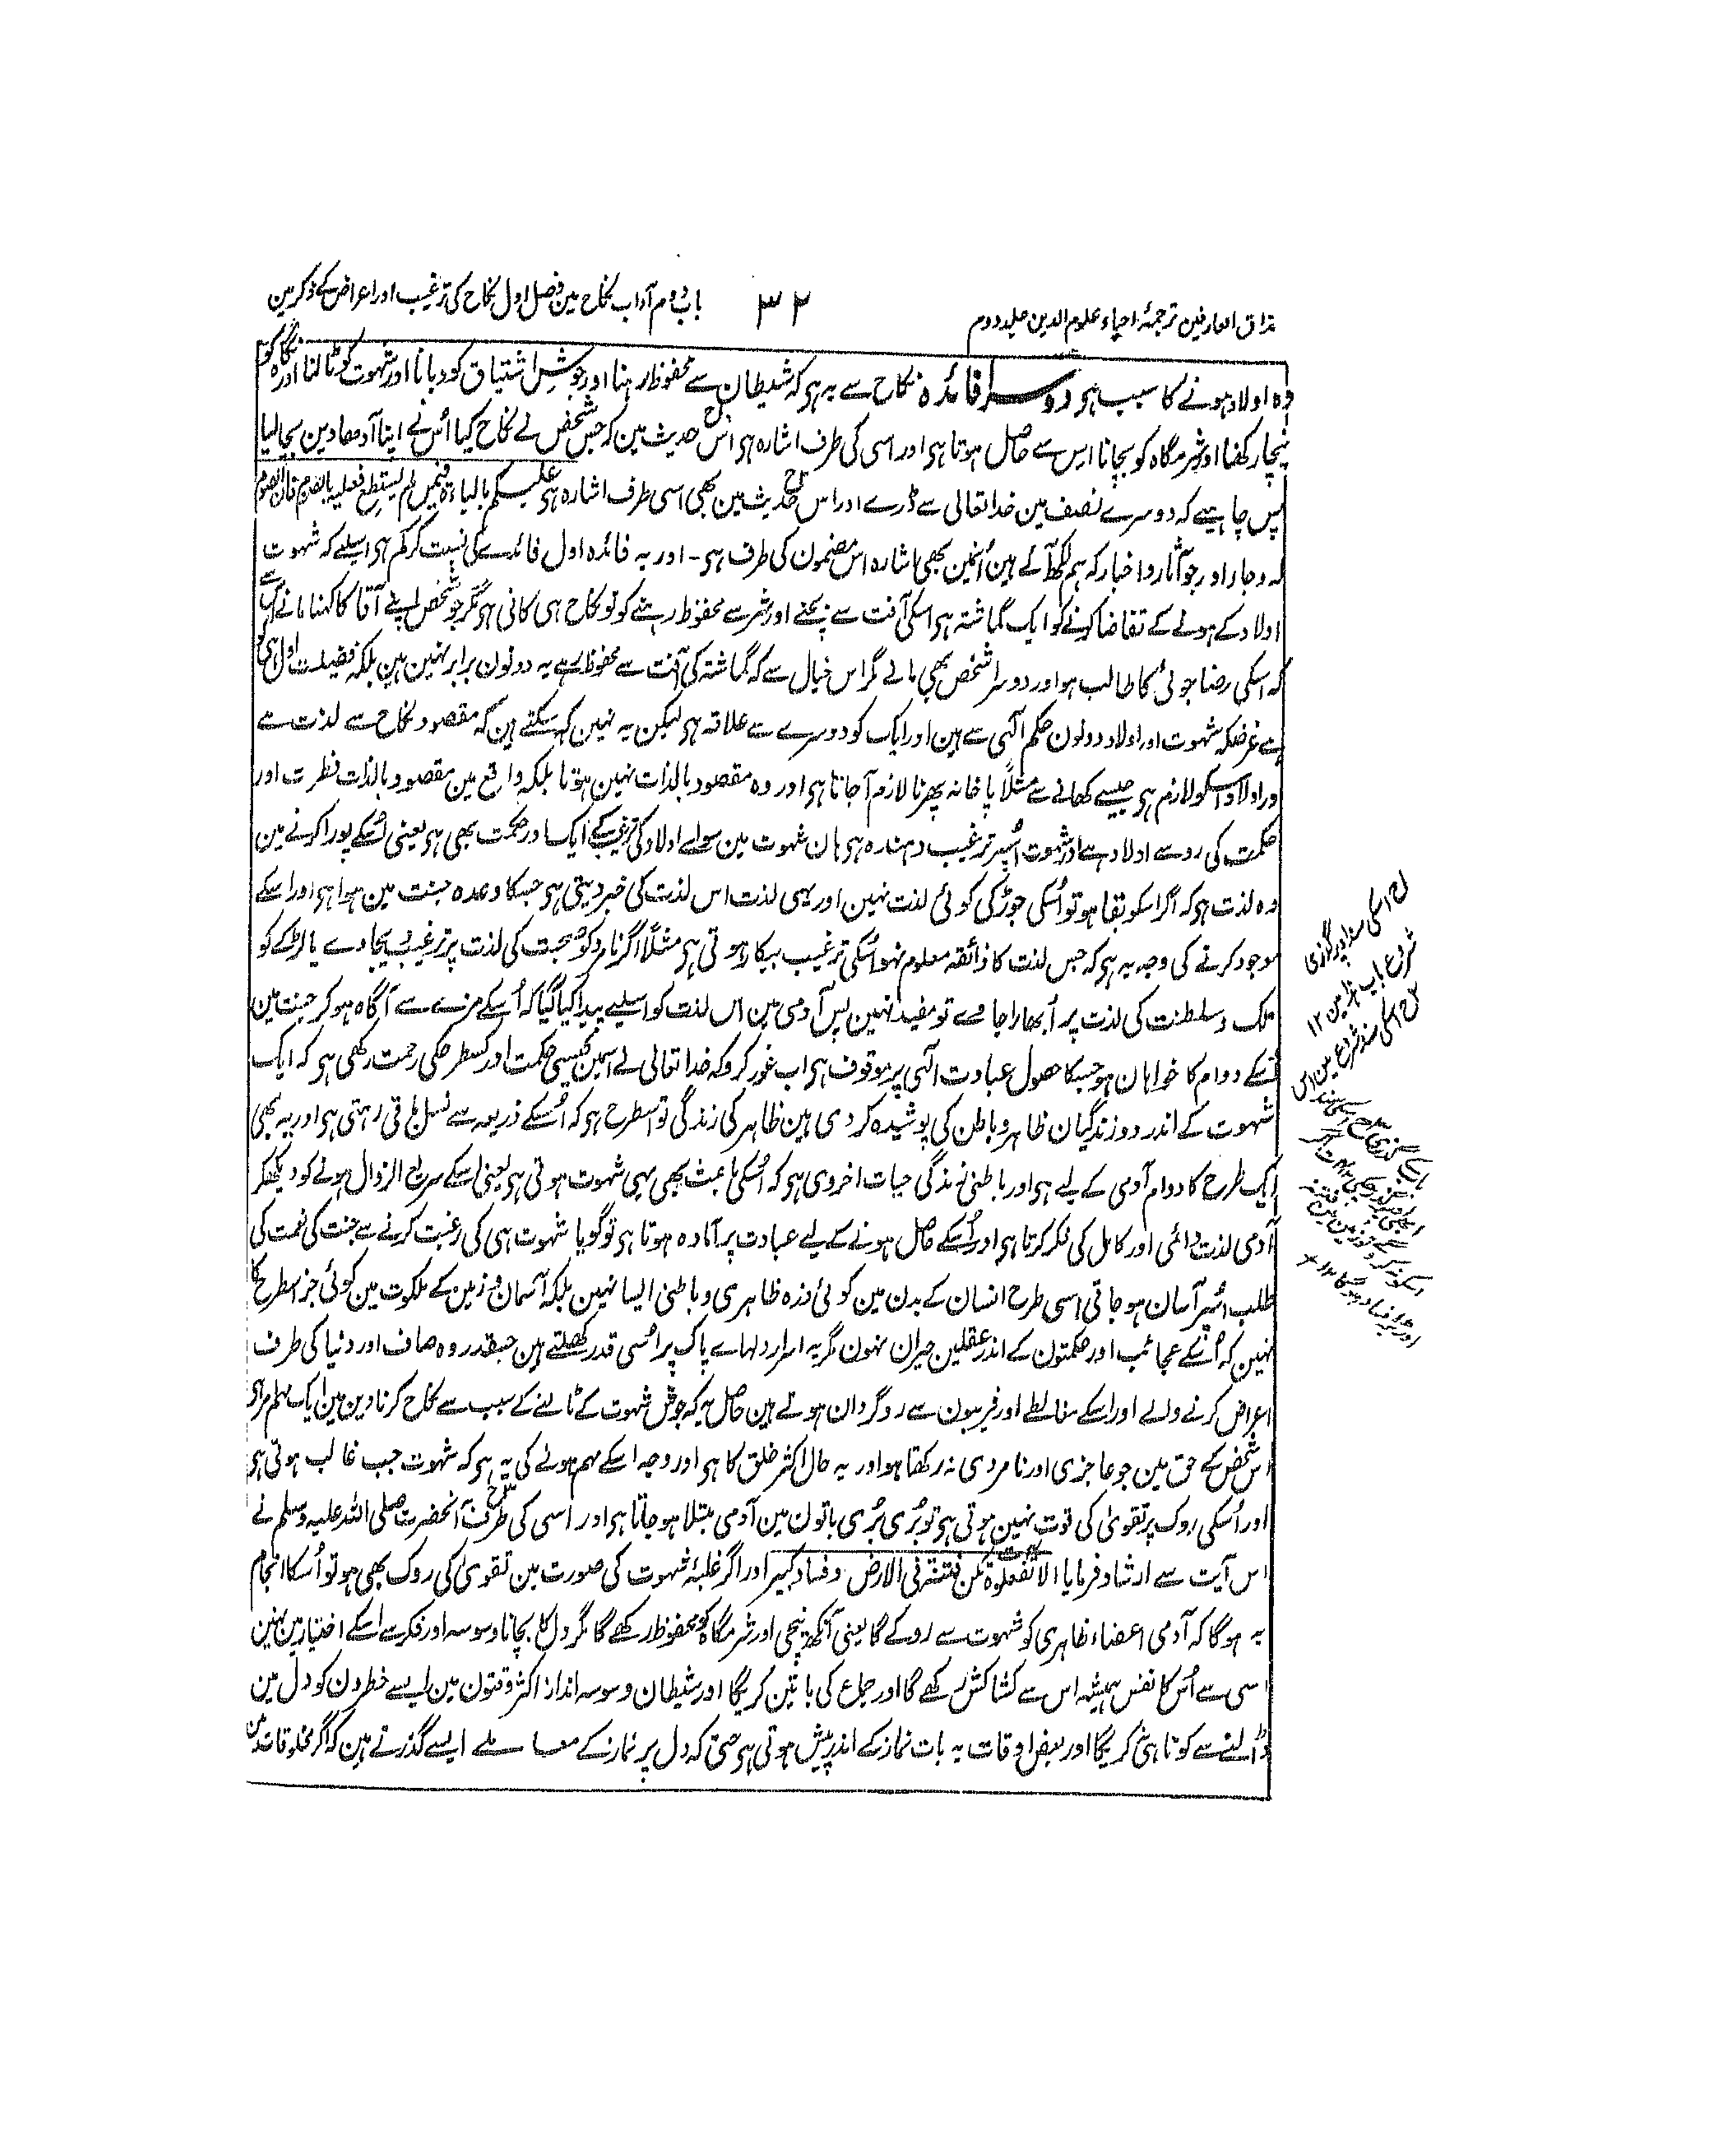 مذاق العارفین ترجمۂ احیاء علوم الدین جلد دوم
۳۲
باب دوم آداب نکاح مین فصل اول نکاح کی ترغیب اور اعراض کے ذکر مین
وہ اولاد ہونے کا سبب ہو دوسرا فائدہ نکاح سے یہ ہی کہ شیطان سے محفوظ رہنا اور جوش اشتیاق کو دبانا اور شہوت کو ٹالنا اور نگاہ کو
نیچا رکھنا اور شرمگاہ کو بچانا اس سے حاصل ہوتا ہی اور اسی کی طرف اشارہ ہی اس حدیث مین کہ جس شخص نے نکاح کیا اُس نے اپنا آدھا دین بچا لیا
پس چاہیے کہ دوسرے نصف مین خدا تعالی سے ڈرے اور اس حدیث مین بھی اسی طرف اشارہ ہی علیکم بالباءۃ فمن لم یستطع فعلیہ بالصوم فان الصوم
لہ وجار اور جو آثار و اخبار کہ ہم لکھ آئے ہین اُنمین بھی اشارہ اس مضمون کی طرف ہی - اور یہ فائدہ اول فائدے کی نسبت کر کم ہی اسلیے کہ شہوت
اولاد کے ہونے کے تقاضا کرنے کو ایک گماشتہ ہی اسکی آفت سے بچنے اور شر سے محفوظ رہنے کو تو نکاح ہی کافی ہی مگر جو شخص اپنے آقا کا کہنا مانے اس لیے
کہ اسکی رضا جوئی کا طالب ہو اور دوسرا شخص بھی مانے مگر اس خیال سے کہ گماشتہ کی آفت سے محفوظ رہے یہ دونون برابر نہین ہین بلکہ فضیلت اول ہی کو
ہے غرضکہ شہوت اور اولاد دونون حکم الٰہی سے ہین اور ایک کو دوسرے سے علاقہ ہی لیکن یہ نہین کہہ سکتے ہین کہ مقصود نکاح سے لذت ہے
اور اولاد اسکو لازم ہی جیسے کھانے سے مثلاً پاخانہ پھرنا لازم آ جاتا ہی اور وہ مقصود بالذات نہین ہوتا بلکہ واقع مین مقصود بالذات فطرت اور
حکمت کی رو سے اولاد ہے اور شہوت اُسپر ترغیب دہندہ ہی ہان شہوت مین سوائے اولاد کی ترغیب کے ایک اور حکمت بھی ہی یعنی اُسکے پورا کرنے مین
وہ لذت ہی کہ اگر اسکو بقا ہو تو اُسکی جوڑ کی کوئی لذت نہین اور یہی لذت اس لذت کی خبر دیتی ہی جسکا وعدہ جنت مین ہوا ہی اور اسکے
موجود کرنے کی وجہ یہ ہی کہ جس لذت کا ذائقہ معلوم نہو اُسکی ترغیب بیکار ہوتی ہی مثلاً اگر نامرد کو صحبت کی لذت پر ترغیب کیجاوے یا لڑکے کو
ملک و سلطنت کی لذت پر اُبھارا جاے تو مفید نہین پس آدمی مین اس لذت کو اسلیے پیدا کیا گیا کہ اُسکے مزے سے آگاہ ہو کر جنت مین
اُسکے دوام کا خواہان ہو جسکا حصول عبادت الٰہی پر موقوف ہی اب غور کرو کہ خدا تعالی نے اسمین کیسی حکمت اور کسطرح کی رحمت رکھی ہی کہ ایک
شہوت کے اندر دو زندگیان ظاہر و باطن کی پوشیدہ کر دی ہین ظاہر کی زندگی تو اسطرح ہی کہ اُسکے ذریعہ سے نسل باقی رہتی ہی اور یہ بھی
ایک طرح کا دوام آدمی کے لیے ہی اور باطنی زندگی حیات اخروی ہی کہ اُسکی باعث بھی یہی شہوت ہوتی ہی یعنی اسکے سریع الزوال ہونے کو دیکھکر
آدمی لذت دائمی اور کامل کی فکر کرتا ہی اور اُسکے حاصل ہونے کے لیے عبادت پر آمادہ ہوتا ہی تو گویا شہوت ہی کی رغبت کرنے سے جنت کی نعمت کی
طلب اُسپر آسان ہو جاتی اسی طرح انسان کے بدن مین کوئی ذرہ ظاہری و باطنی ایسا نہین بلکہ آسمان و زمین کے ملکوت مین کوئی جز اسطرح کا
نہین کہ اُنکے عجائب اور حکمتون کے اندر عقلین حیران نہون مگر یہ اسرار دلہاے پاک پر اُسی قدر کھلتے ہین جسقدر وہ صاف اور دنیا کی طرف
اعراض کرنے والے اور اسکے مغالطے اور فریبون سے روگردان ہوتے ہین حاصل یہ کہ جوش شہوت کے ٹالنے کے سبب سے نکاح کرنا دین مین ایک مہم امر ہی
اس شخص کے حق مین جو عاجزی اور نامردی نہ رکھتا ہو اور یہ حال اکثر خلق کا ہی اور وجہ اسکے مہم ہونے کی یہ ہی کہ شہوت جب غالب ہوتی ہی
اور اُسکی روک پر تقویٰ کی قوت نہین ہوتی ہی تو بُری بُری باتون مین آدمی مبتلا ہو جاتا ہی اور اسی کی طرف آنحضرت صلی اللہ علیہ وسلم نے
اس آیت سے ارشاد فرمایا الا تفعلوہ تکن فتنۃ فی الارض و فساد کبیر اور اگر غلبۂ شہوت کی صورت مین تقویٰ کی روک بھی ہو تو اُسکا انجام
یہ ہوگا کہ آدمی اعضاء ظاہری کو شہوت سے روکے گا یعنی آنکھ نیچی اور شرمگاہ کو محفوظ رکھے گا مگر دل کا بچانا وسوسہ اور فکر سے اسکے اختیار مین نہین
اسی سے اُس کا نفس ہمیشہ اس سے کشاکش رکھے گا اور جماع کی باتین کریگا اور شیطان وسوسہ انداز اکثر وقتون مین ایسے خطرون کو دل مین
ڈالنے سے کوتاہی نہ کریگا اور بعض اوقات یہ بات نماز کے اندر پیش ہوتی ہی حتی کہ دل پر نماز کے معاملے ایسے گذرتے ہین کہ اگر مخلوقات مین
اسکی سند اوپر گذری
شروع باب ہذا مین ۱۲
اسکی سند شروع مین اس